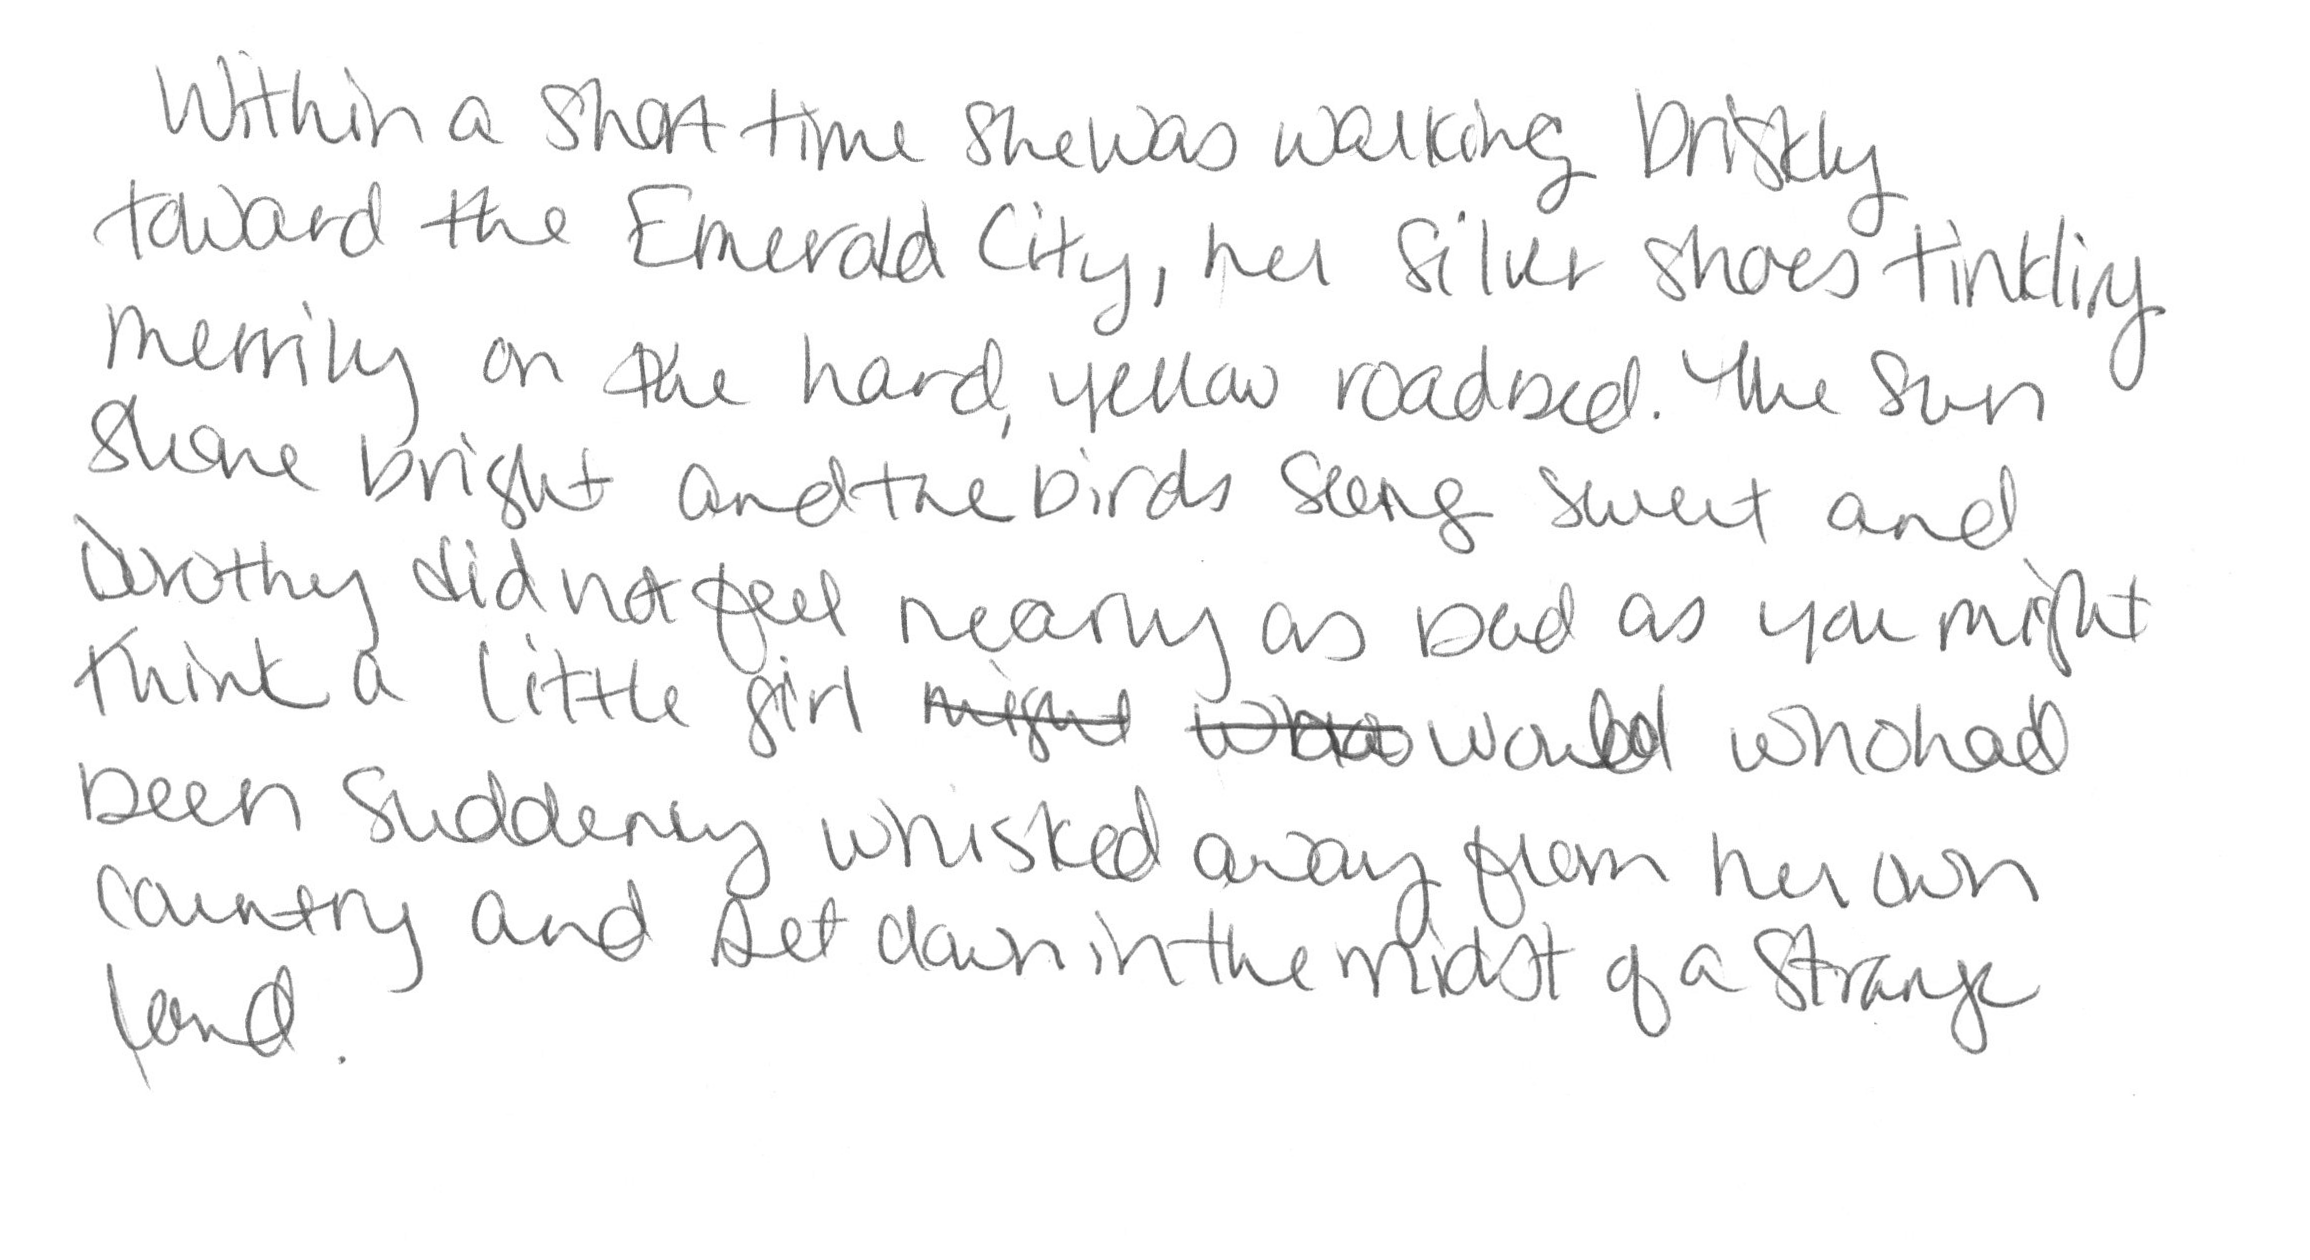 Within a short time she was walking briskly
toward the Emerald City, her Silver Shoes tinkling
merrily on the hard, yellow roadbed. The sun
shone bright and the birds sung sweet and
Dorothy did not feel nearly as bad as you might
think a little girl might would who had
been suddenly whisked away from her own
country and set down in the midst of a strange
land.